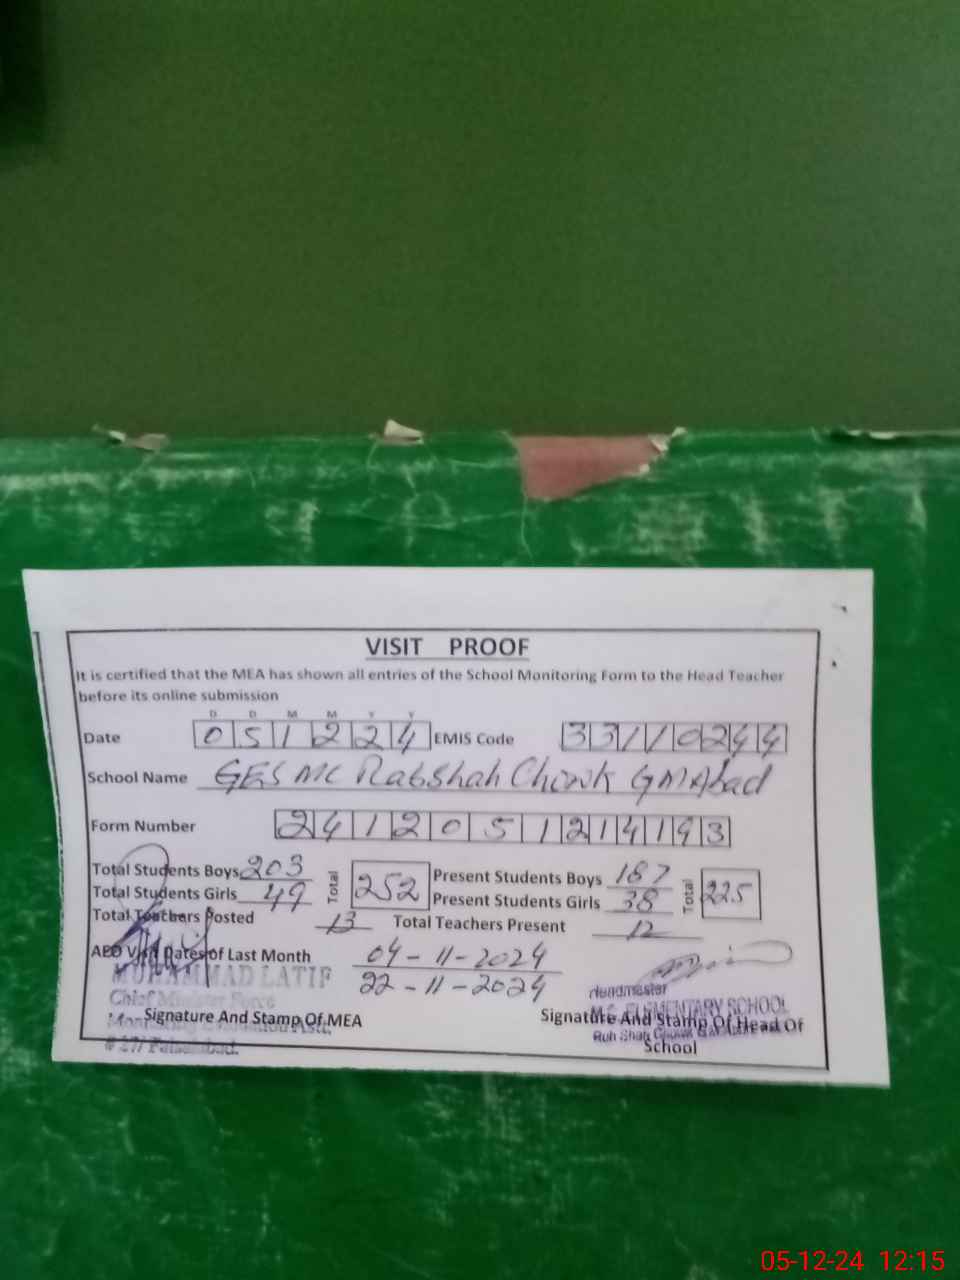 VISIT PROOF
It is certified that the MEA has shown all entries of the School Monitoring Form to the Head Teacher
before its online submission
D D M M Y Y
Date 0 5 1 2 2 4 EMIS Code 3 3 1 1 0 2 4 4
School Name GES MC Rabshah Chowk GMAbad
Form Number 2 4 1 2 0 5 1 2 1 4 1 9 3
Total Students Boys 203 Total 252 Present Students Boys 187 Total 225
Total Students Girls 49 Present Students Girls 38
Total Teachers Posted 13 Total Teachers Present 12
AEO Visit Dates of Last Month 04-11-2024
22-11-2024
MUHAMMAD LATIF
Chief Minister Force
Signature And Stamp Of MEA
# 27/ Faisalabad.
Headmaster
M.C. ELEMENTARY SCHOOL
Signature And Stamp Of Head Of
School
05-12-24 12:15